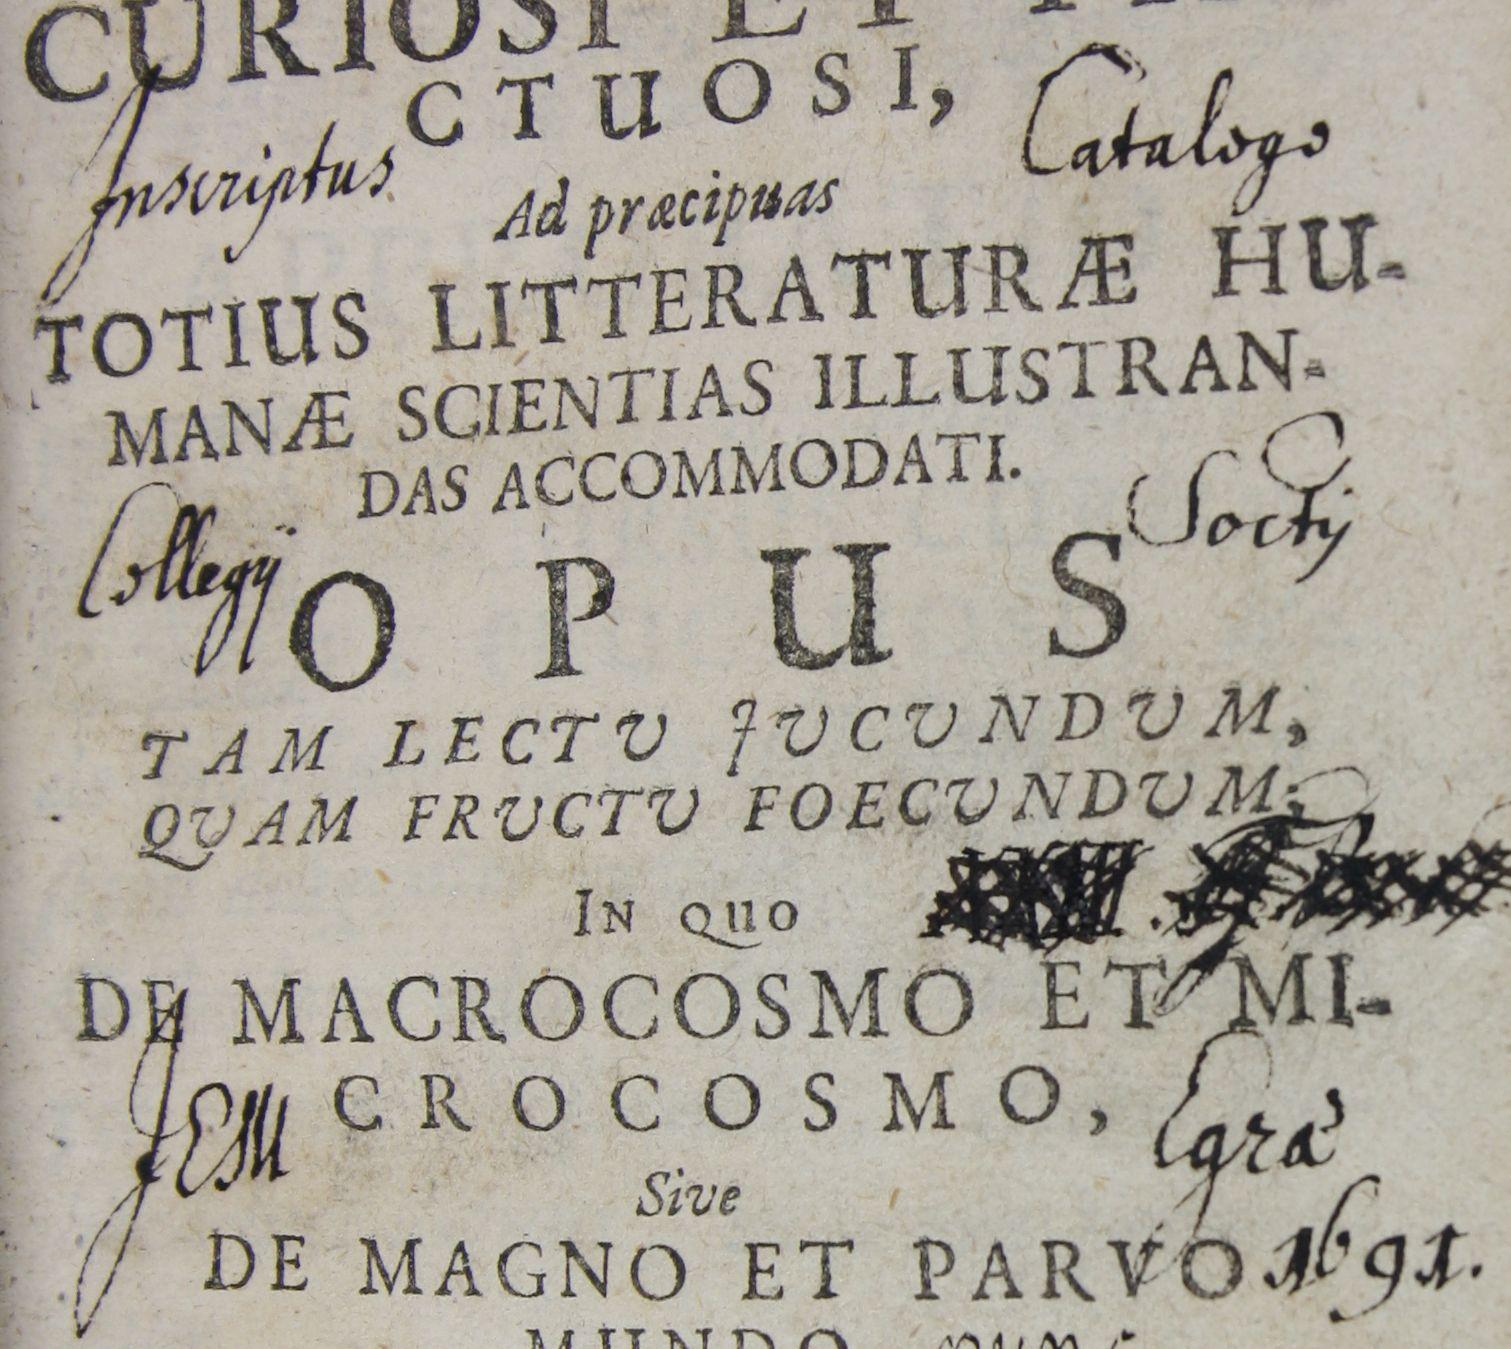 CURIOSI ET
CTUOSI,
Inscriptus Catalogo
Ad præcipuas
TOTIUS LITTERATURÆ HU-
MANÆ SCIENTIAS ILLUSTRAN-
DAS ACCOMMODATI.
Collegij Soctij
OPUS
TAM LECTU JUCUNDUM,
QUAM FRUCTU FOECUNDUM;
IN QUO
DE MACROCOSMO ET MI-
CROCOSMO,
JESU Egræ
Sive
DE MAGNO ET PARVO 1691.
MUNDO